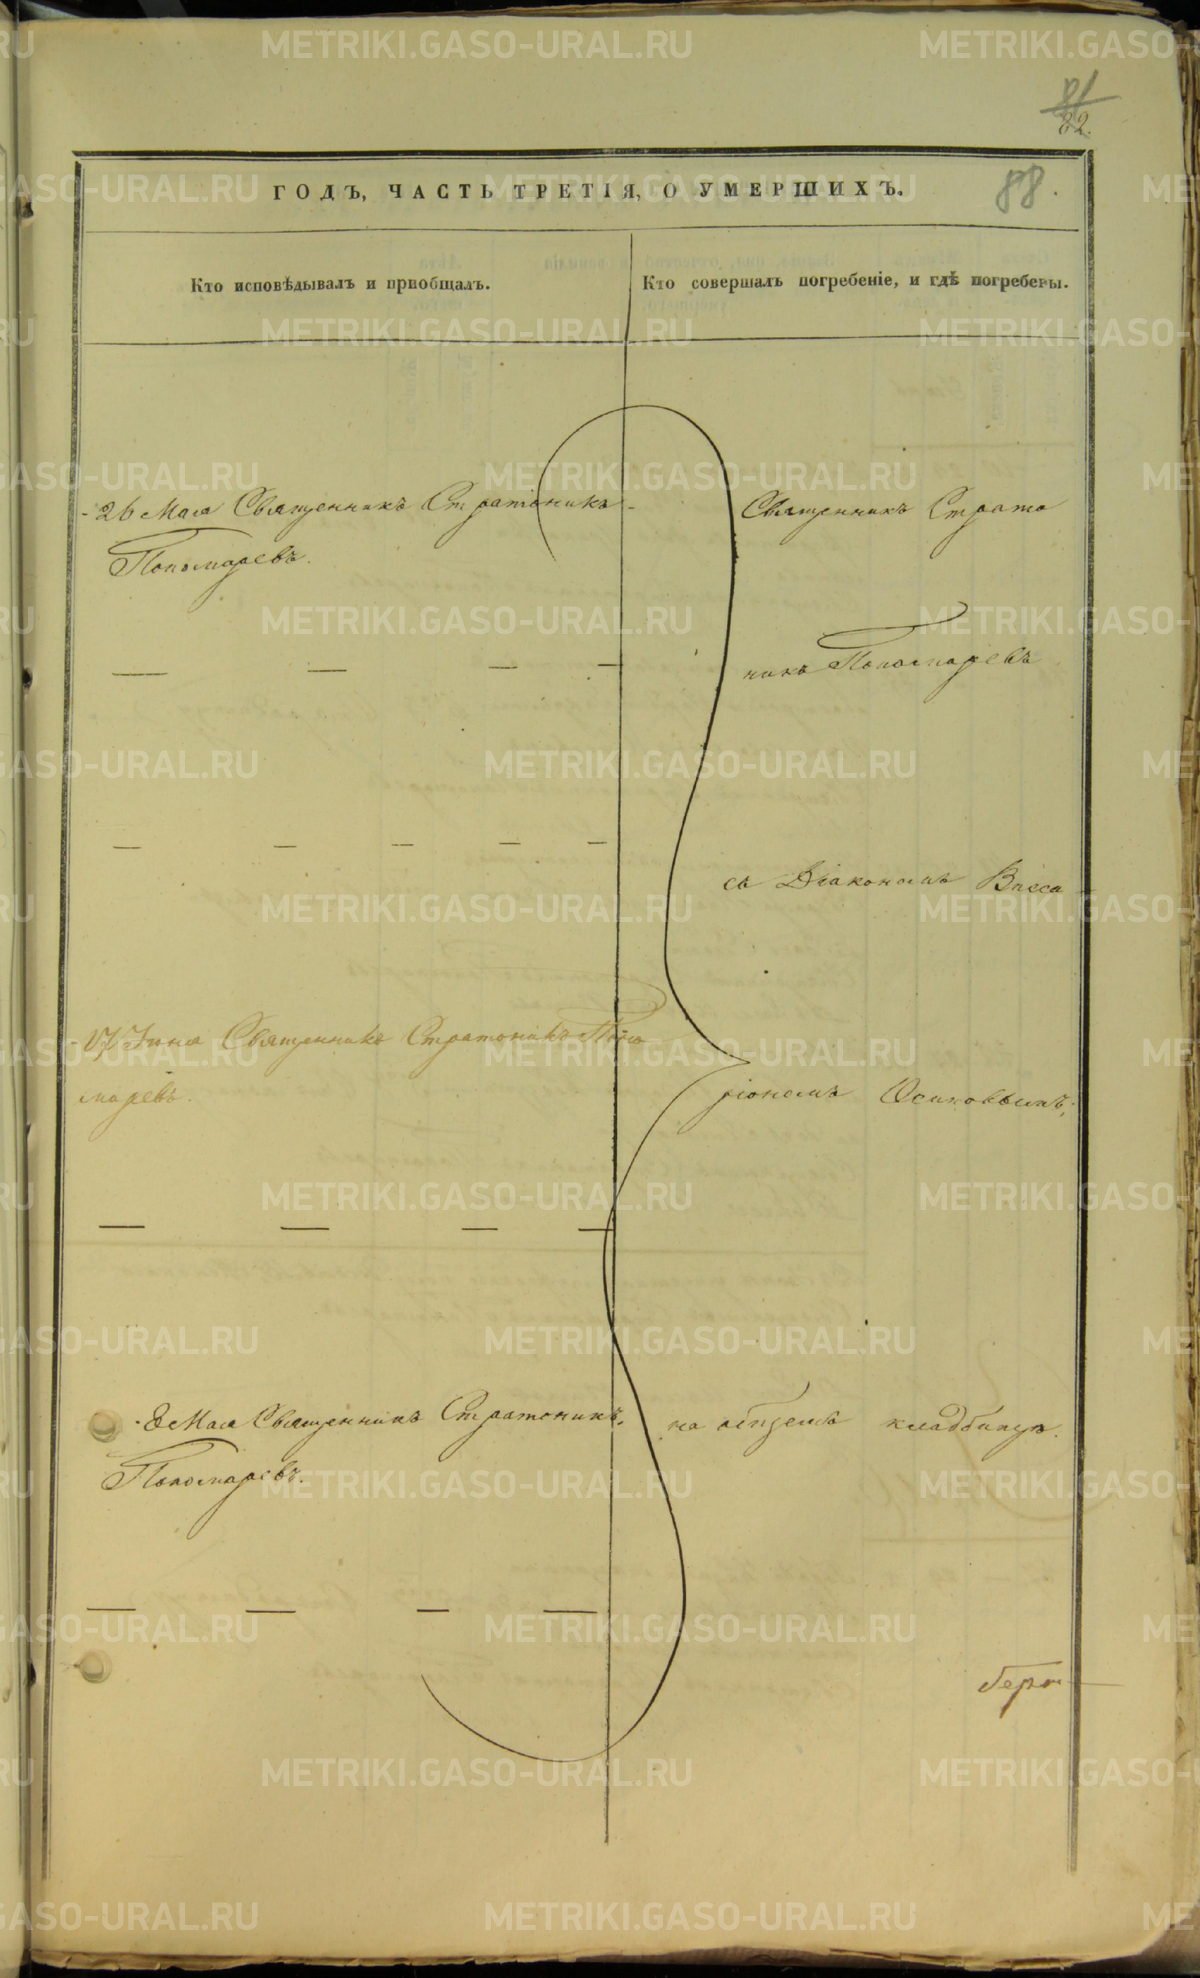 82.
ГОДЪ, ЧАСТЬ ТРЕТІЯ, О УМЕРШИХЪ.
88.
Кто исповѣдывалъ и пріобщалъ.
Кто совершалъ погребеніе, и гдѣ погребены.
- 26 Мая Священникъ Стратоникъ -
Пономаревъ.
- 17 Іюня Священникъ Стратоникъ Поно
маревъ.
- 8 Мая Священникъ Стратоникъ.
Пономаревъ.
Священникъ Страто
никъ Пономаревъ
съ Діакономъ Висса
ріономъ Осиповымъ,
на общемъ кладбищѣ.
METRIKI.GASO-URAL.RU